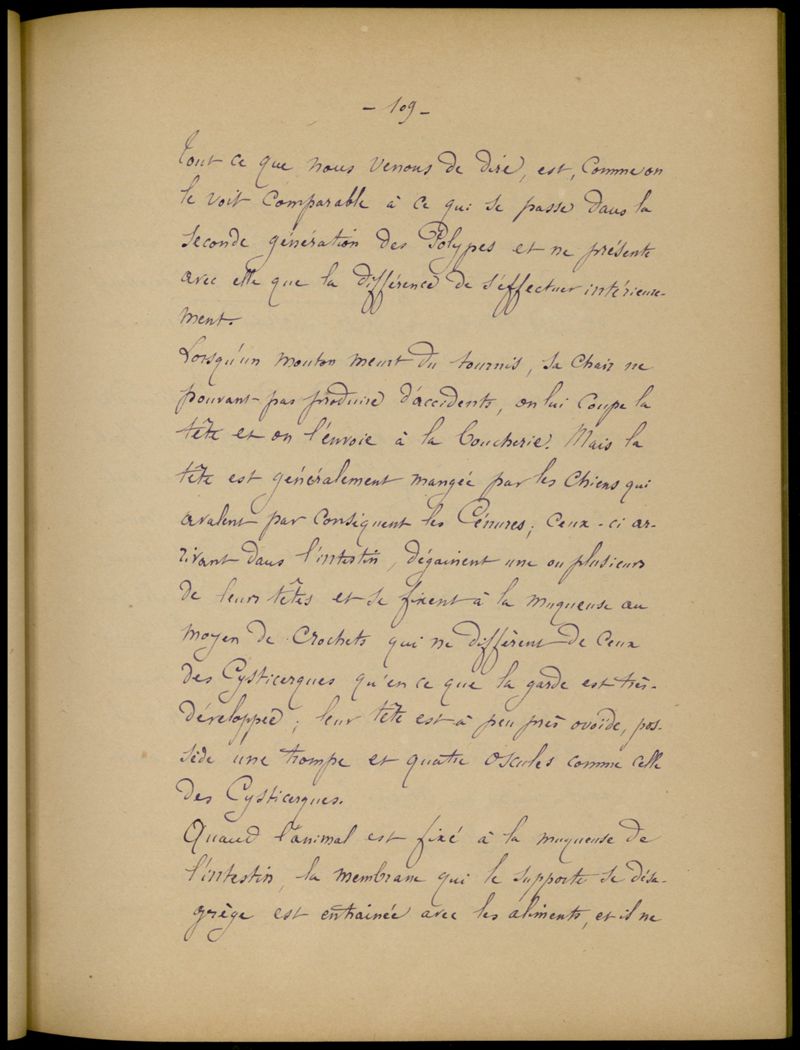 - 109 -
Tout ce que nous venons de dire, est, comme on
le voit comparable à ce qui se passe dans la
seconde génération des Polypes et ne présente
avec elle que la différence de s'effectuer intérieure-
ment.
Lorsqu'un mouton meurt du tournis, sa chair ne
pouvant pas produire d'accidents, on lui coupe la
tête et on l'envoie à la boucherie. Mais la
tête est généralement mangée par les chiens qui
avalent par conséquent les Cénures; ceux-ci ar-
rivant dans l'intestin, dégainent une ou plusieurs
de leurs têtes et se fixent à la muqueuse au
moyen de crochets qui ne diffèrent de ceux
des Cysticerques qu'en ce que la garde est très-
développée; leur tête est à peu près ovoïde, pos-
sède une trompe et quatre oscules comme celle
des Cysticerques.
Quand l'animal est fixé à la muqueuse de
l'intestin, la membrane qui le supporte se désa-
grège est entrainée avec les aliments, et il ne